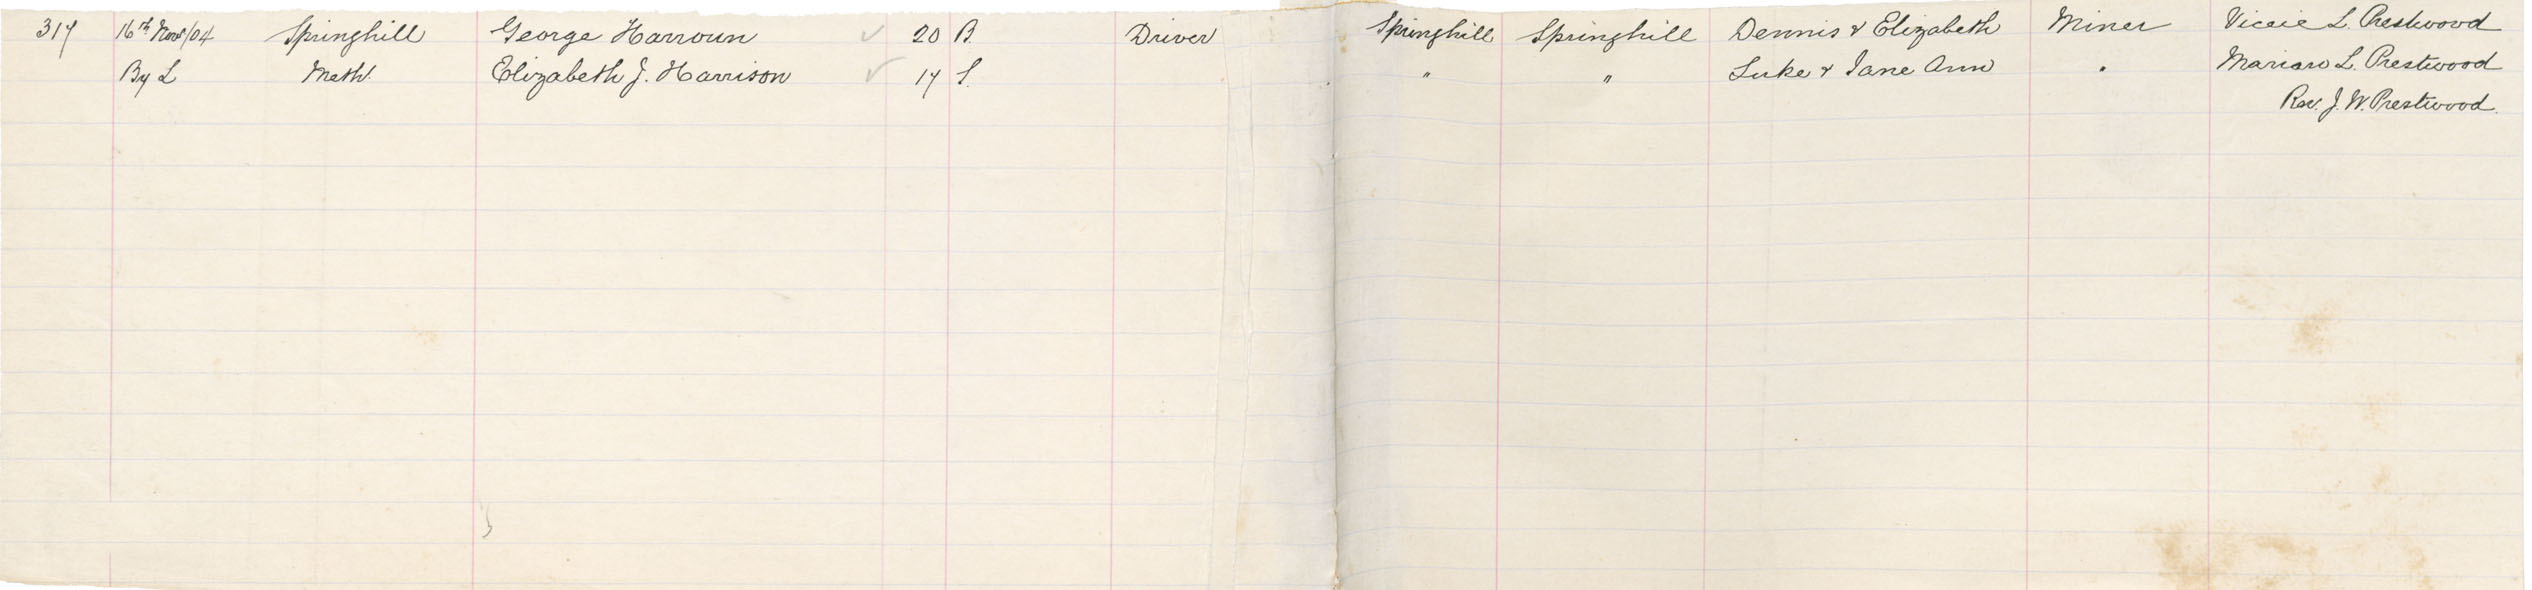 317 16th Novr/04 Springhill George Harroun 20 B. Driver Springhill Springhill Dennis & Elizabeth Miner L. Prestwood
By L Meth. Elizabeth J. Harrison 17 S. " " Luke & Jane Ann " Marian L. Prestwood
Rev. J. W. Prestwood.